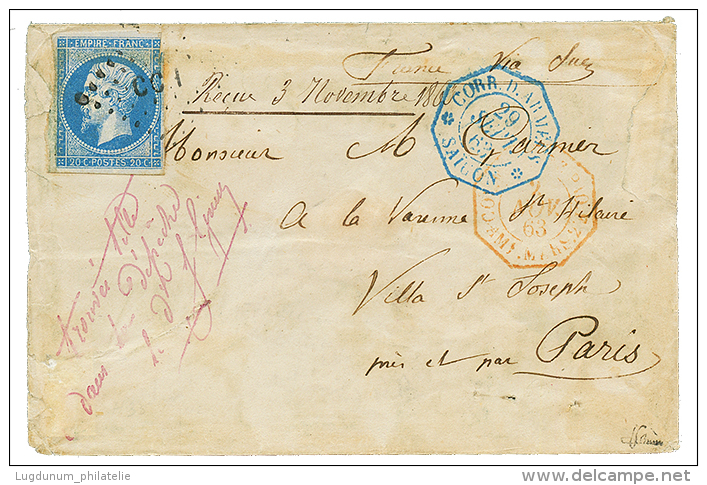 EMPIRE FRANC.
20 C. POSTES 20 C.
France Via Suez
Reçue 3 Novembre 186
CORR. D. ARMÉES
29
SEPT
63
SAIGON
Monsieur M Garnier
NOV
63
à la Varenne St Hilaire
Villa St Joseph
près et par Paris
trouvée
dans la dépêche
Lugdunum_philatelie
delcampe.net